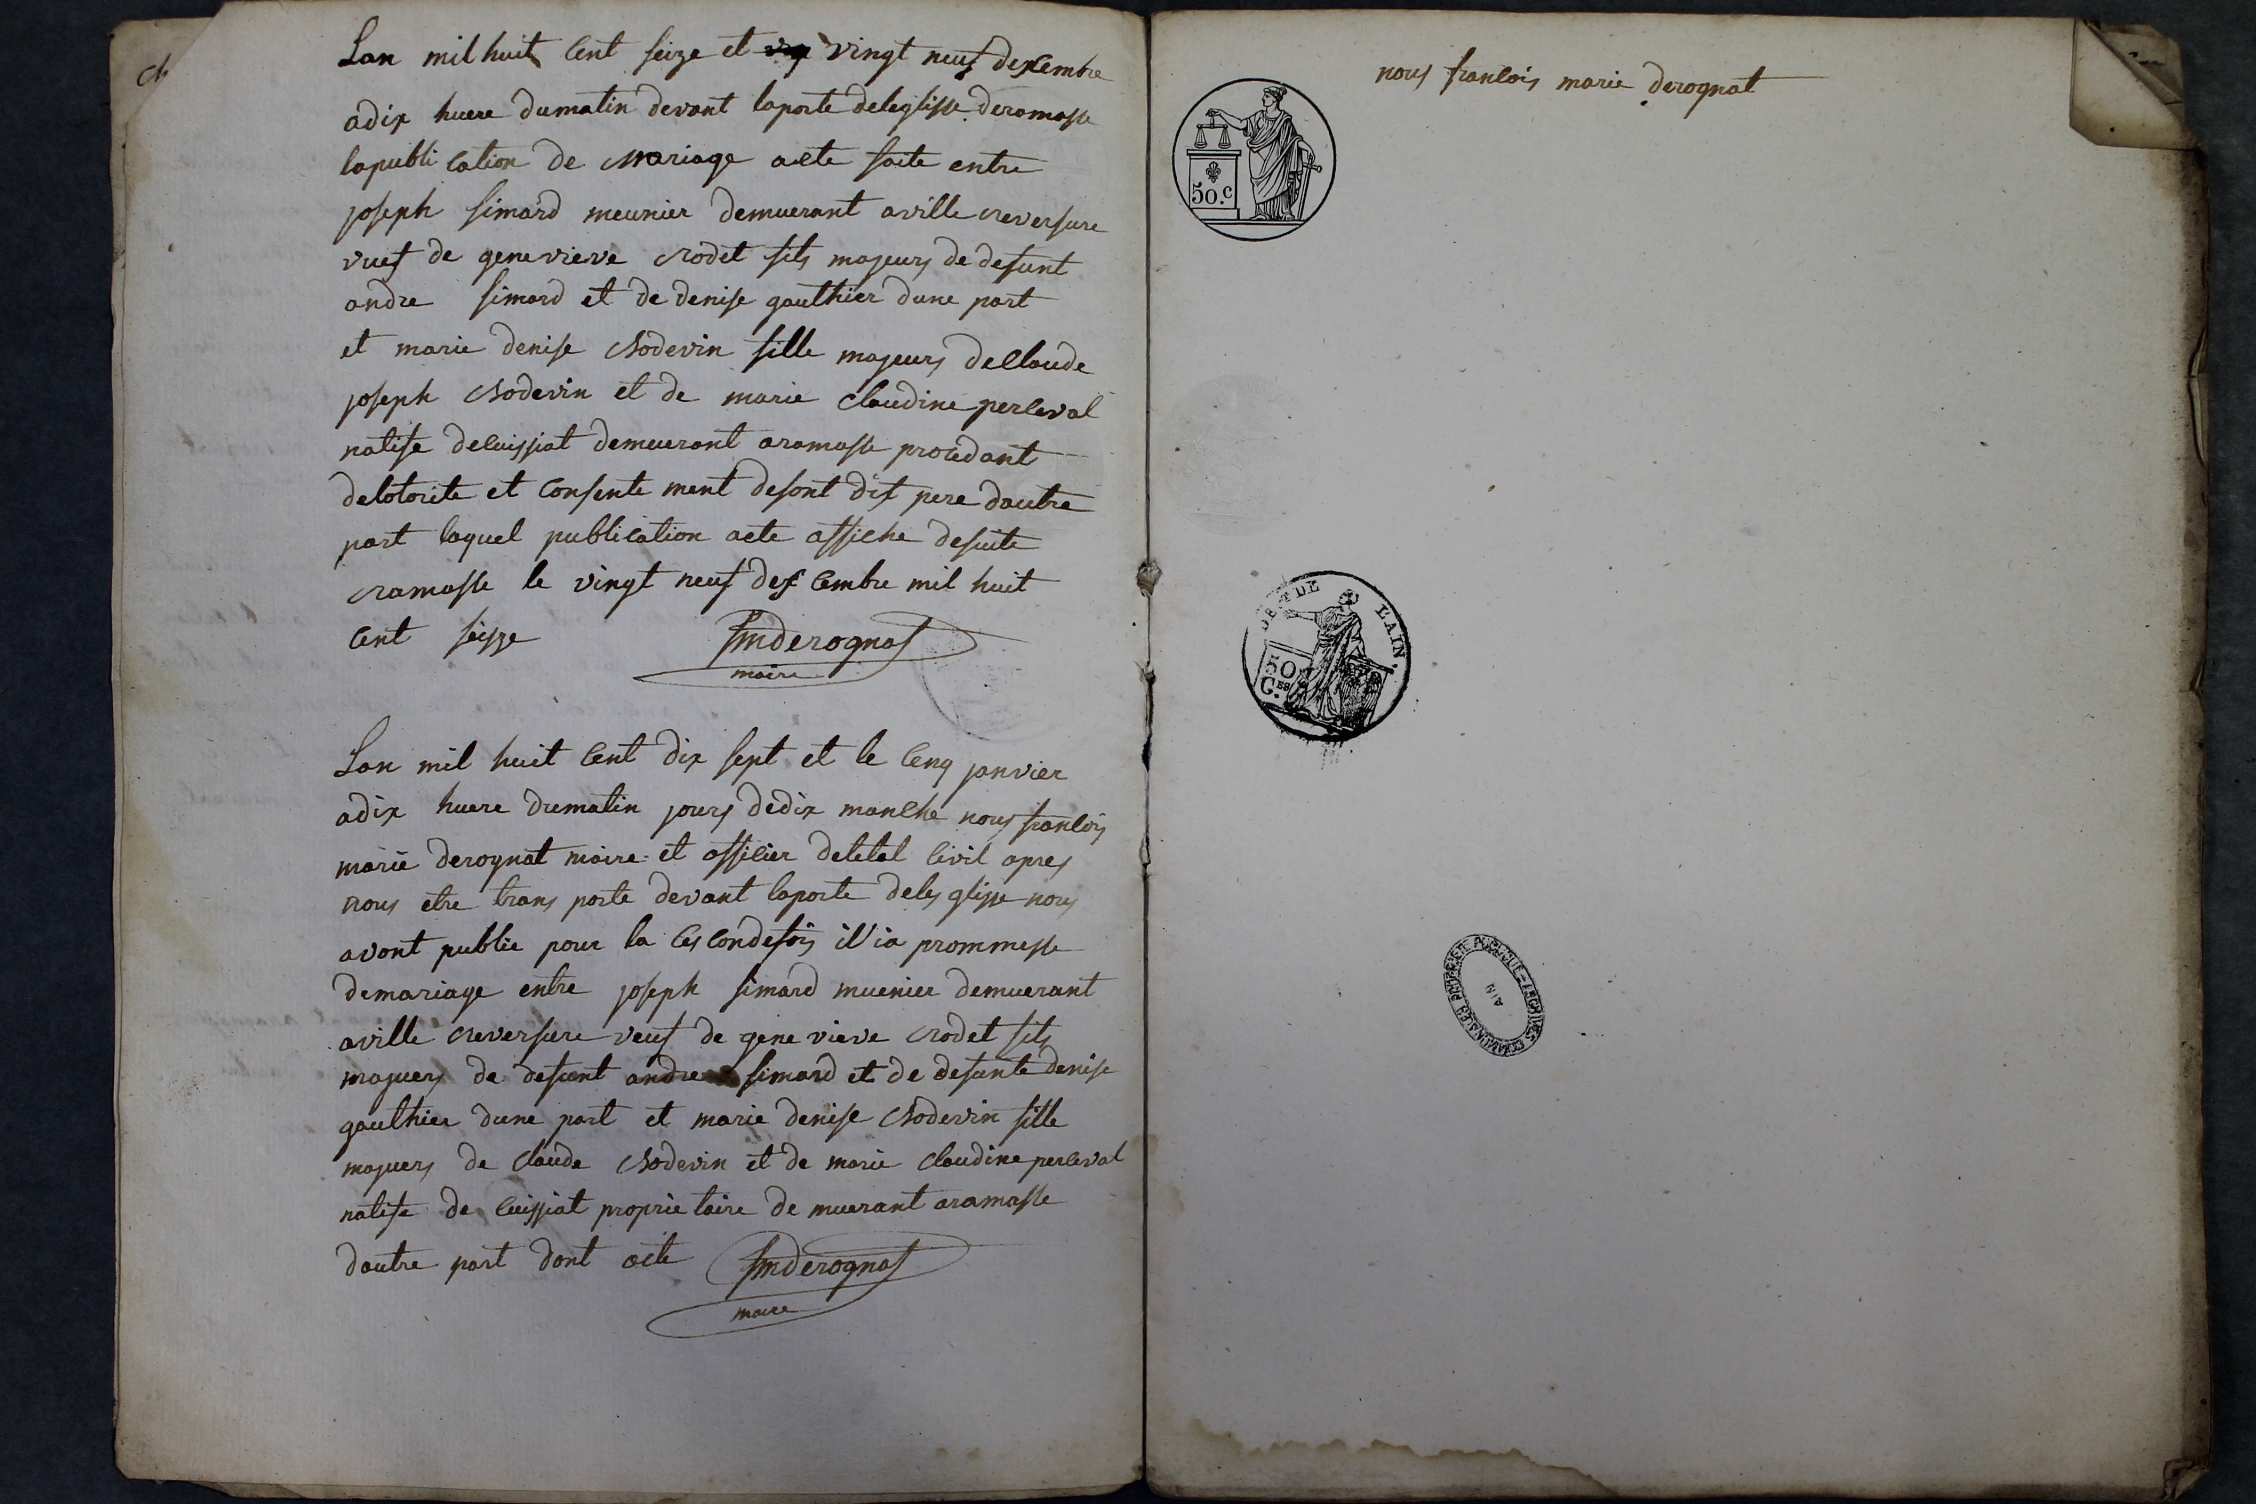 Lan mil huit Cent seize et vingt neuf dexcembre
adix huere dumatin devant laporte deleglisse deramasse
lapubli cation de Mariage acte faite entre
joseph simard meunier demuerant aville reversure
vuef de genevieve rodet fils majeurs de defunt
andre simard et de denise gauthier dune part
et marie denise Chodevin fille majeurs de Claude
joseph Chodevin et de marie Claudine perceval
natife decuissiat demeurant aramasse procedant
delotorite et Consente ment desont dit pere dautre
part laquel publication acte affiche desuite
ramasse le vingt neuf des Cembre mil huit
Cent seizze
fmderognat
maire
Lan mil huit Cent dix sept et le Cenq janvier
adix huere dumatin jours dedix manche nous francois
marie derognat maire et officier deletat Civil apres
nous etre trans porte devant laporte deles glisse nous
avont publie pour la Ces Condefois il ia prommesse
demariage entre joseph simard muenier demuerant
aville reversure veuf de gene vieve rodet fils
majuers de defunt andre simard et de defunte denise
gauthier dune part et marie denise Chodevin fille
majuers de Claude Chodevin et de marie Claudine perceval
natife de Cuissiat proprie taire de muerant aramasse
dautre part dont acte
fmderognat
maire
nous francois marie derognat
50.c
DEPT DE L'AIN.
50
C.ES
AIN